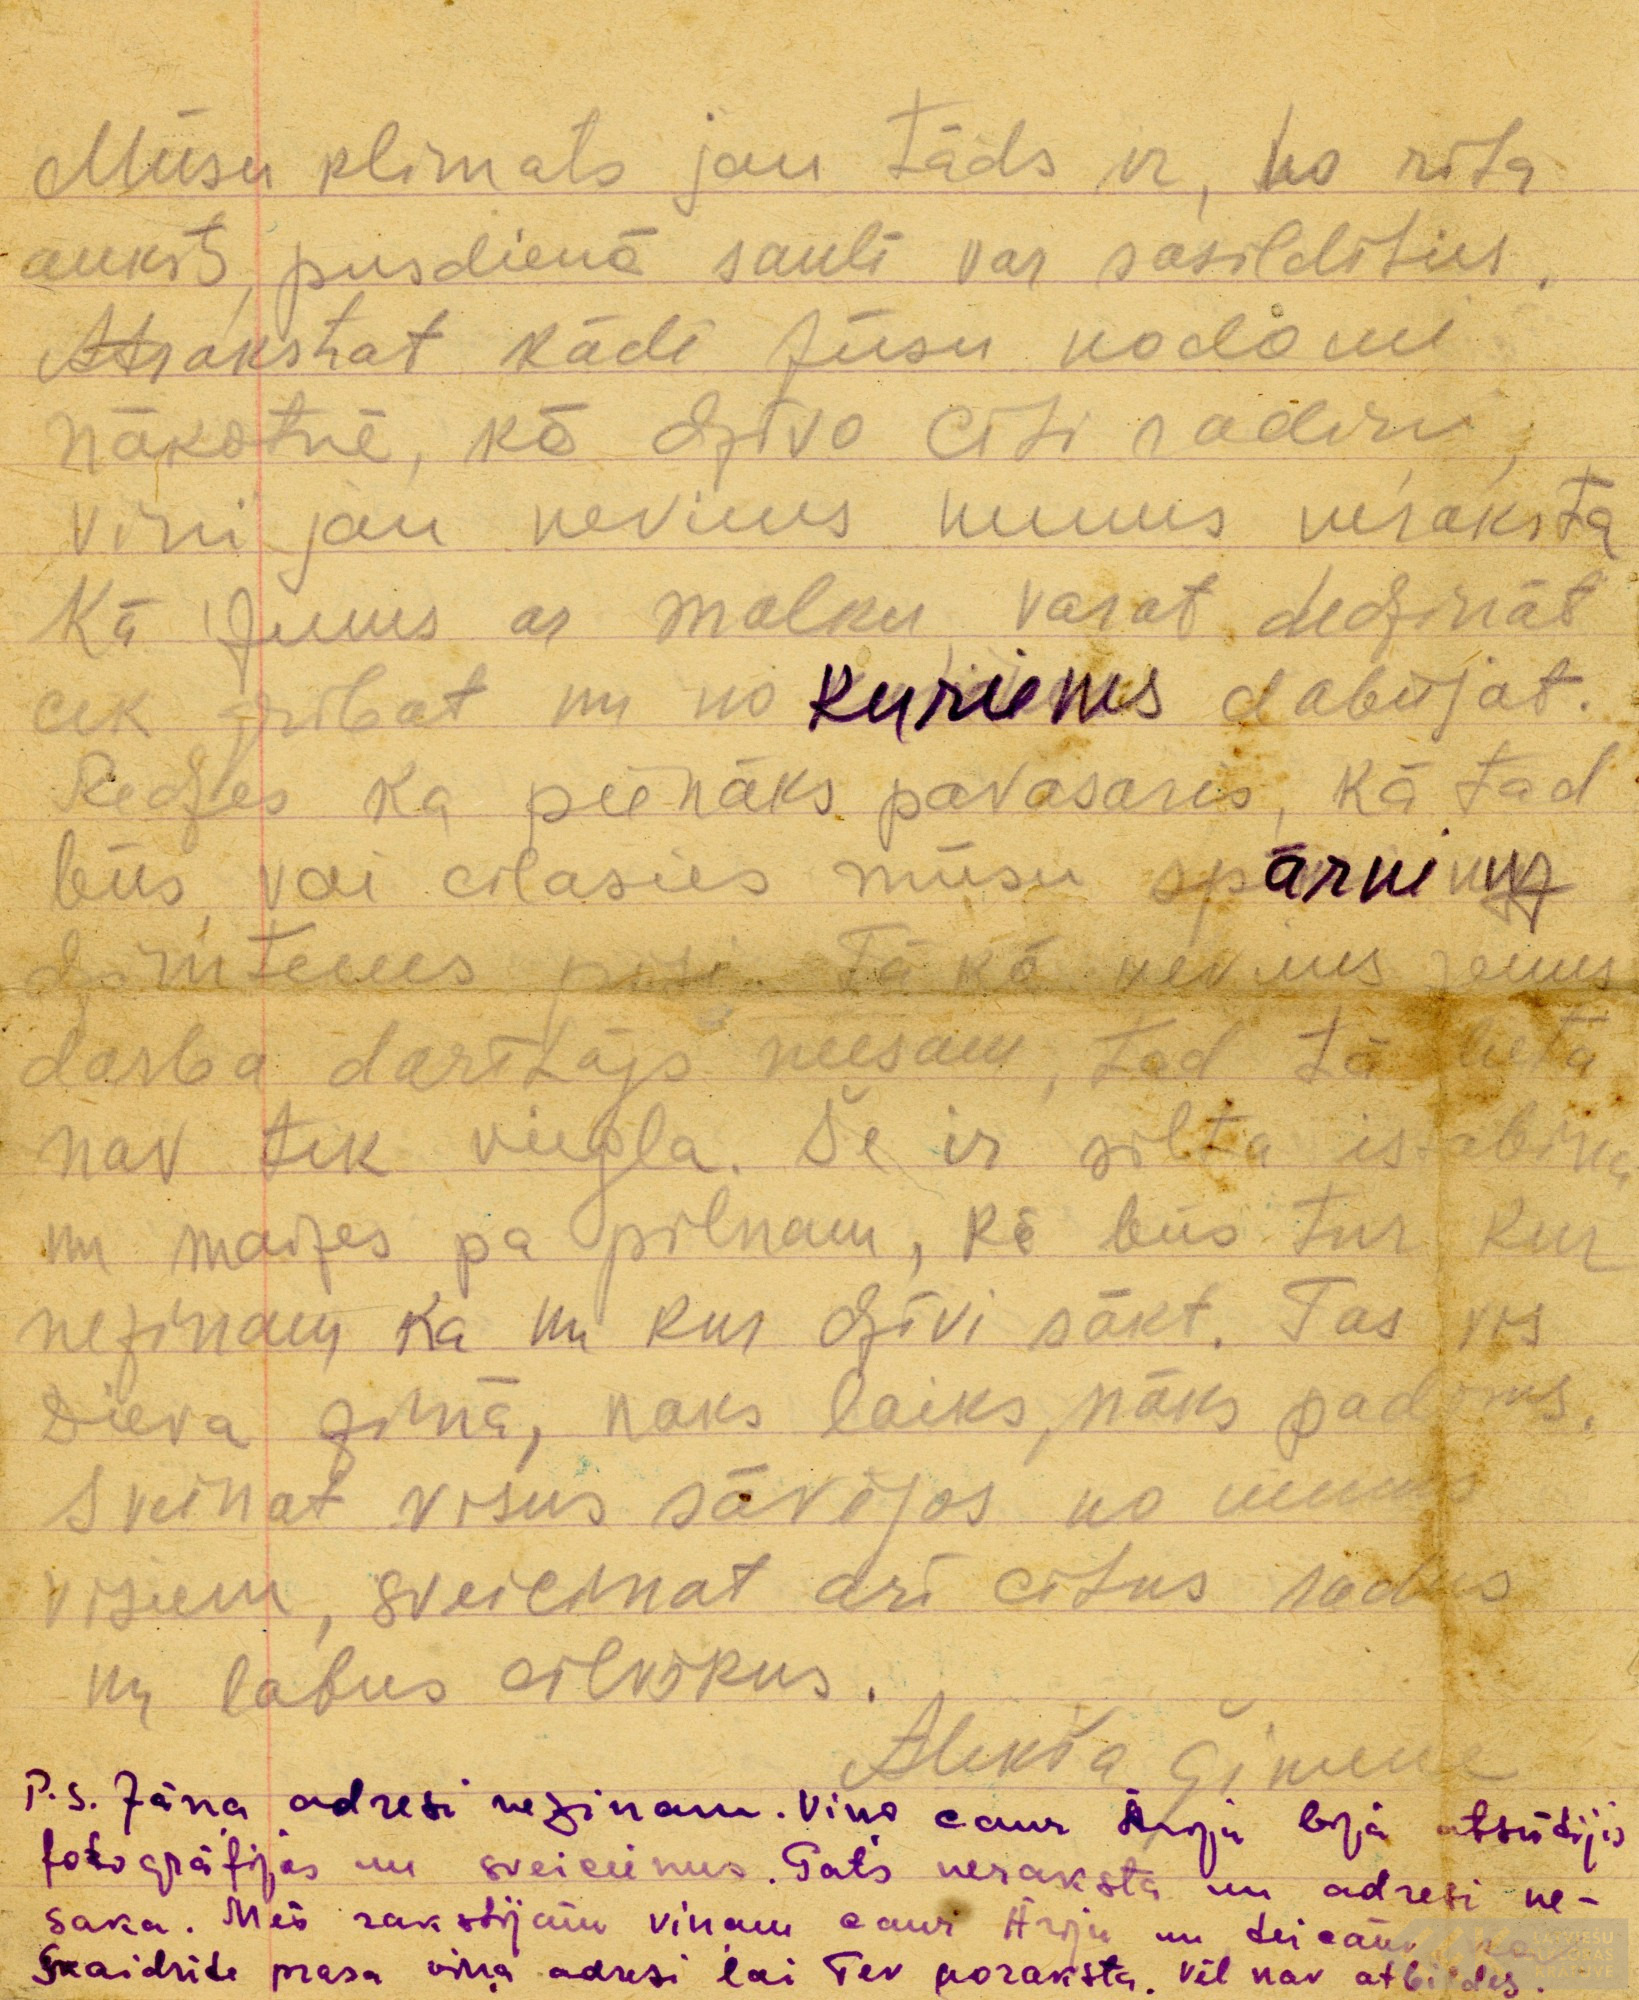 Mūsu klimats jau tāds ir, no rīta
auksts, pusdienā saulē var sasildīties.
Atrakstat kādi Jūsu nodomi
nākotnē, kā dzīvo citi radiņi,
viņi jau neviens mums neraksta
Kā Jums ar malku, varat dedzināt
cik gribat un no kurienes dabūjat.
Redzēs ka pienāks pavasaris, kā tad
būs, vai cilāsies mūsu spārni uz
dzimtenes pusi. Tā kā neviens zemes
darba darītājs neesam, tad tā lieta
nav tik viegla. Še ir silta istabiņa
un maizes pa pilnam, kā būs tur kur
nezinam kā un kur dzīvi sākt. Tas vis
Dieva ziņā, nāks laiks, nāks padoms.
Sveicinat visus sāvējos no mums
visiem, sveicinat arī citus radus
un labus cilvēkus.
Alekša ģimene
P.S. Jāņa adresi nezinam. Viņš caur Āriju bija atsūtījis
fotogrāfijas un sveicienus. Pats neraksta un adresi ne-
saka. Mēs rakstījām viņam caur Āriju un teicām ka
Skaidrīte prasa viņa adresi lai Tev noraksta. Vēl nav atbildes.
LATVIEŠU
KRĀTUVE